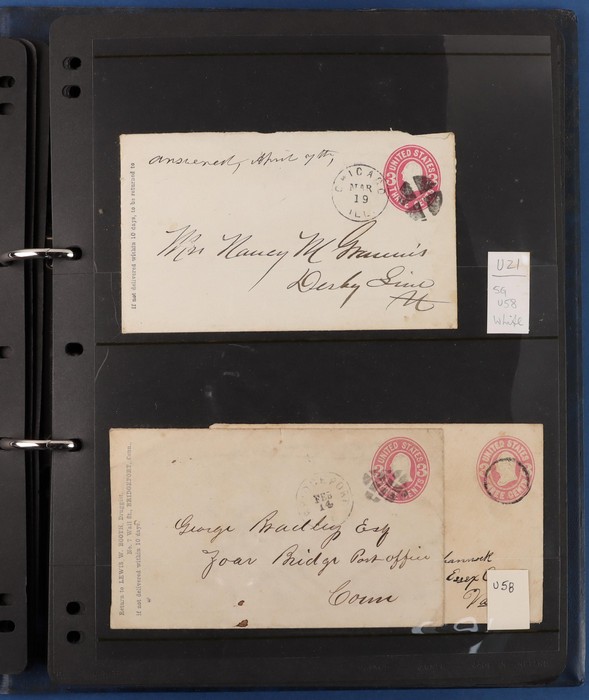 answered, April 9th,
CHICAGO
MAR
19
ILL.
UNITED STATES
THREE
If not delivered within 10 days, to be returned to
Mrs Nancy M
Derby Line
Vt
U21
SG
U58
White
Return to LEWIS W. BOOTH, Druggist,
No. 1 Wall St., BRIDGEPORT, Conn.,
If not delivered within 10 days.
FEB
14
UNITED STATES
George Bradley Esq
Zoar Bridge Post office
Conn
UNITED STATES
hannock
Essex C
U58